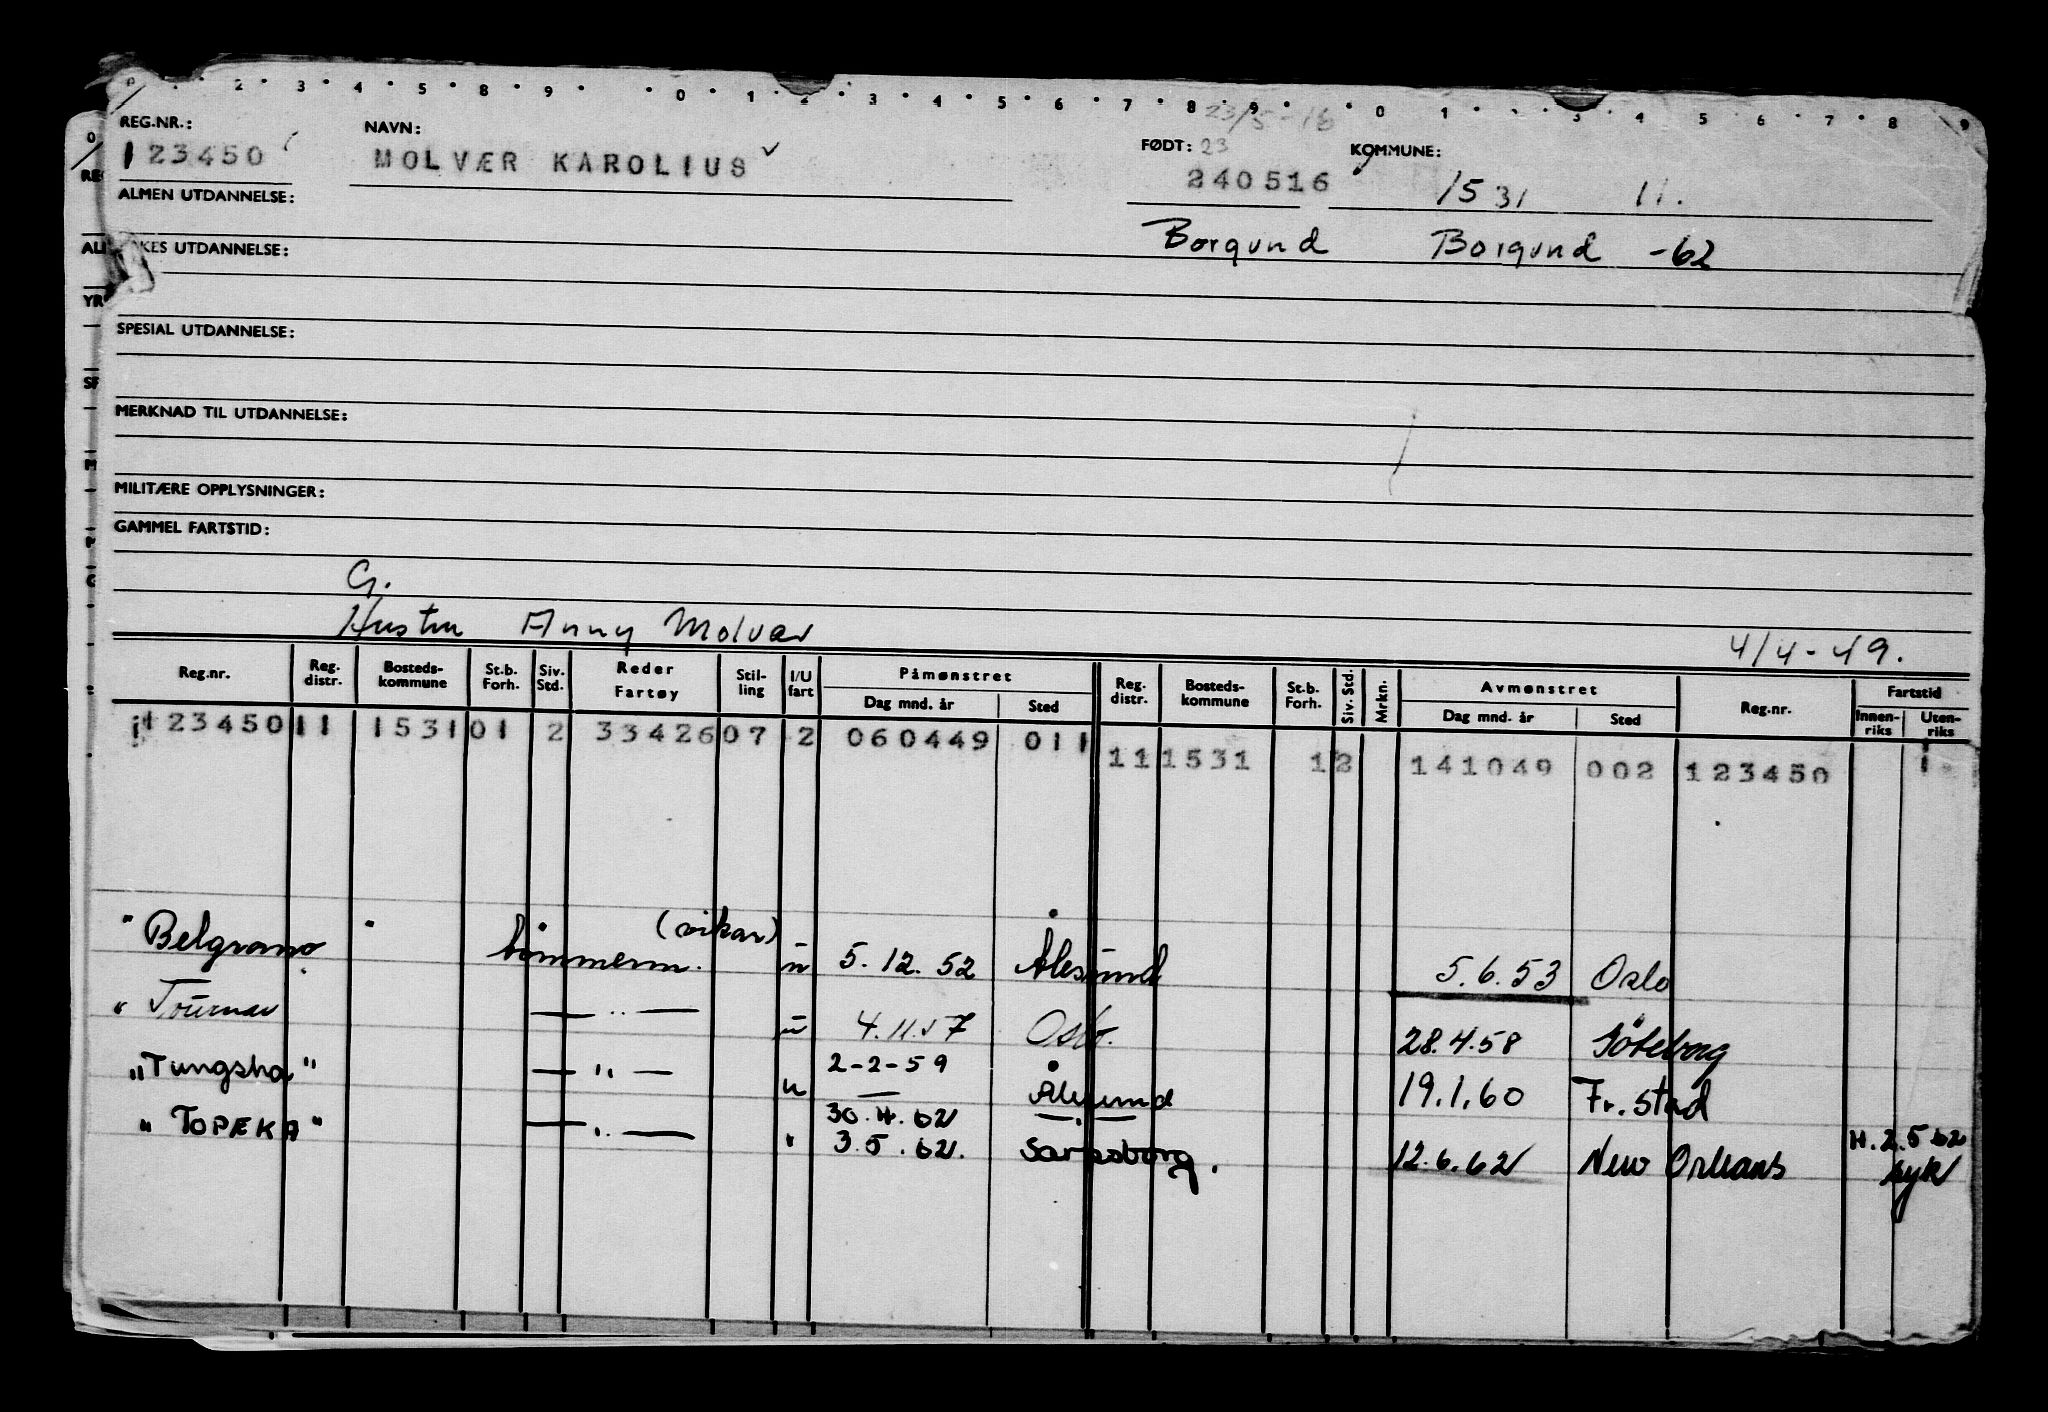 0 . . 2 . 3 . 4 . 5 . 8 . 9 . . 0 . 1 . 2 . 3 . 4 . 5 . 6 . 7 . 8 . 9 . . 0 . 1 . . 3 . 4 . 5 . 6 . 7 . 8 . 9
23/5-16
REG.NR.: NAVN: FØDT: 23 KOMMUNE:
123450 MOLVÆR KAROLIUS 240516 1531 11.
ALMEN UTDANNELSE:
Borgund Borgund -62
YRKES UTDANNELSE:
SPESIAL UTDANNELSE:
MERKNAD TIL UTDANNELSE:
MILITÆRE OPPLYSNINGER:
GAMMEL FARTSTID:
G.
Hustru Anny Molvær 4/4-49.
Reg.nr. Reg. distr. Bosteds- kommune St.b. Forh. Siv. Std. Reder Fartøy Stil- ling I/U fart Påmønstret Dag mnd. år Sted Reg. distr. Bosteds- kommune St.b. Forh. Siv. Std. Mrkn. Avmønstret Dag mnd. år Sted Reg.nr. Fartstid Innen- riks Uten- riks
123450 11 1531 01 2 33426 07 2 060449 011 11 1531 1 2 141049 002 123450 1
"Belgrano" tömmerm. (vikar) u 5.12.52 Ålesund 5.6.53 Oslo
"Tournar — " — u 4.11.57 Oslo. 28.4.58 Göteborg
"Tungsha" — " — u 2-2-59 Ålesund 19.1.60 Fr.stad
30.4.62 — " — H.2.5.62
"TOPEKA" — " — " 3.5.62. Sarpsborg. 12.6.62 New Orleans syk